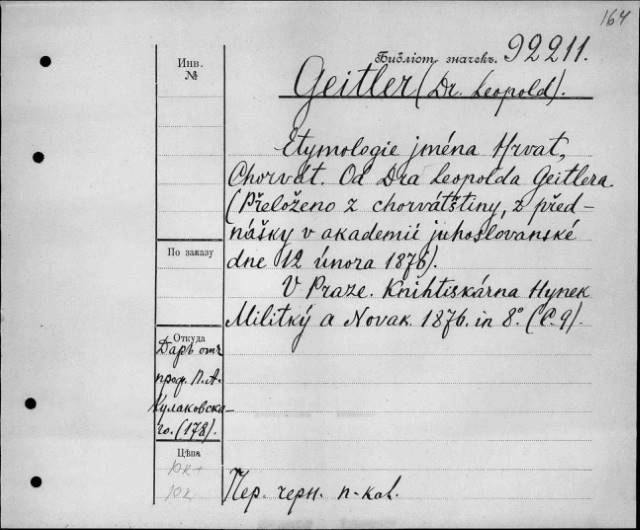 164
Инв.
№
Библіот. значекъ. 92211.
Geitler (Dr. Leopold).
Etymologie jména Hrvat,
Chorvát. Od Dra Leopolda Geitlera
(Přeloženo z chorvátštiny, z před-
nášky v akademii juhoslovanské
dne 12 února 1876).
V Praze. Knihtiskárna Hynek
Militký a Novak. 1876. in 8°. (C. 9).
По заказу
Откуда
Даръ отъ
проф. П. А.
Кулаковска-
го. (178).
Цѣна
Пер. черн. п-кол.